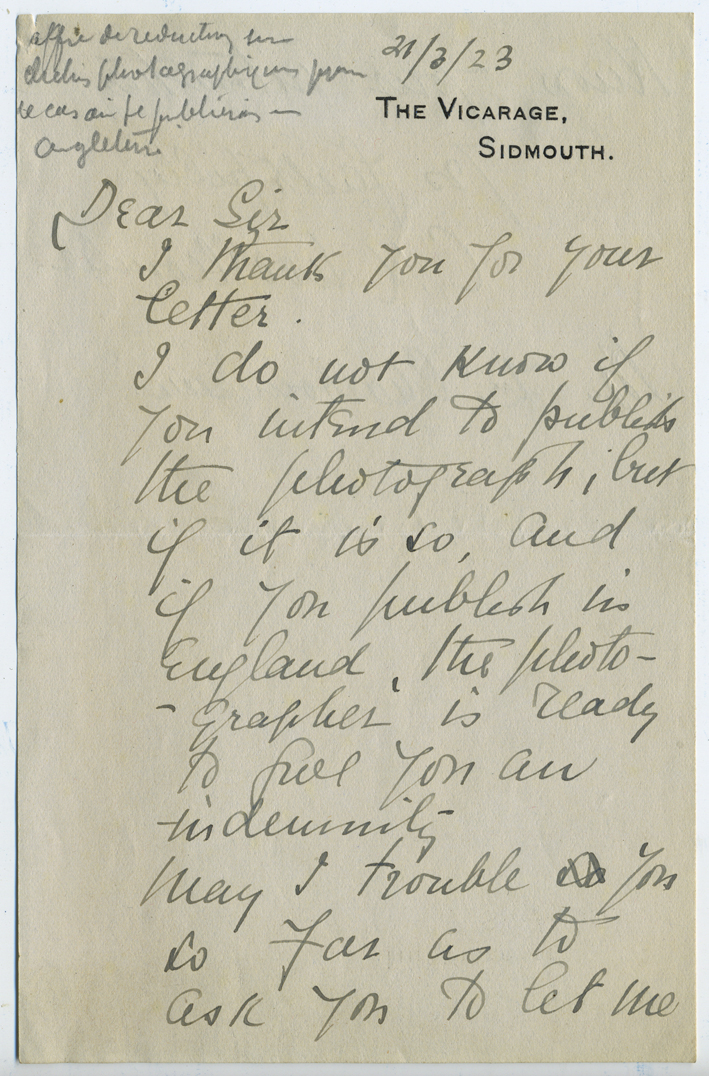 offre de réduction sur
clichés photographiques pour
le cas où je publierais en
Angleterre
21/3/23
THE VICARAGE,
SIDMOUTH.
Dear Sir
I thank you for your
letter.
I do not know if
you intend to publish
the photograph; but
if it is so, and
if you publish in
England, the photo-
-grapher is ready
to give you an
indemnity
May I trouble you
so far as to
ask you to let me